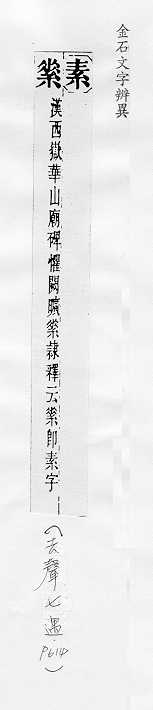 金石文字辨異
【素】
漢西嶽華山廟碑懼闕曠隸釋云即素字
(去聲七遇 P614)